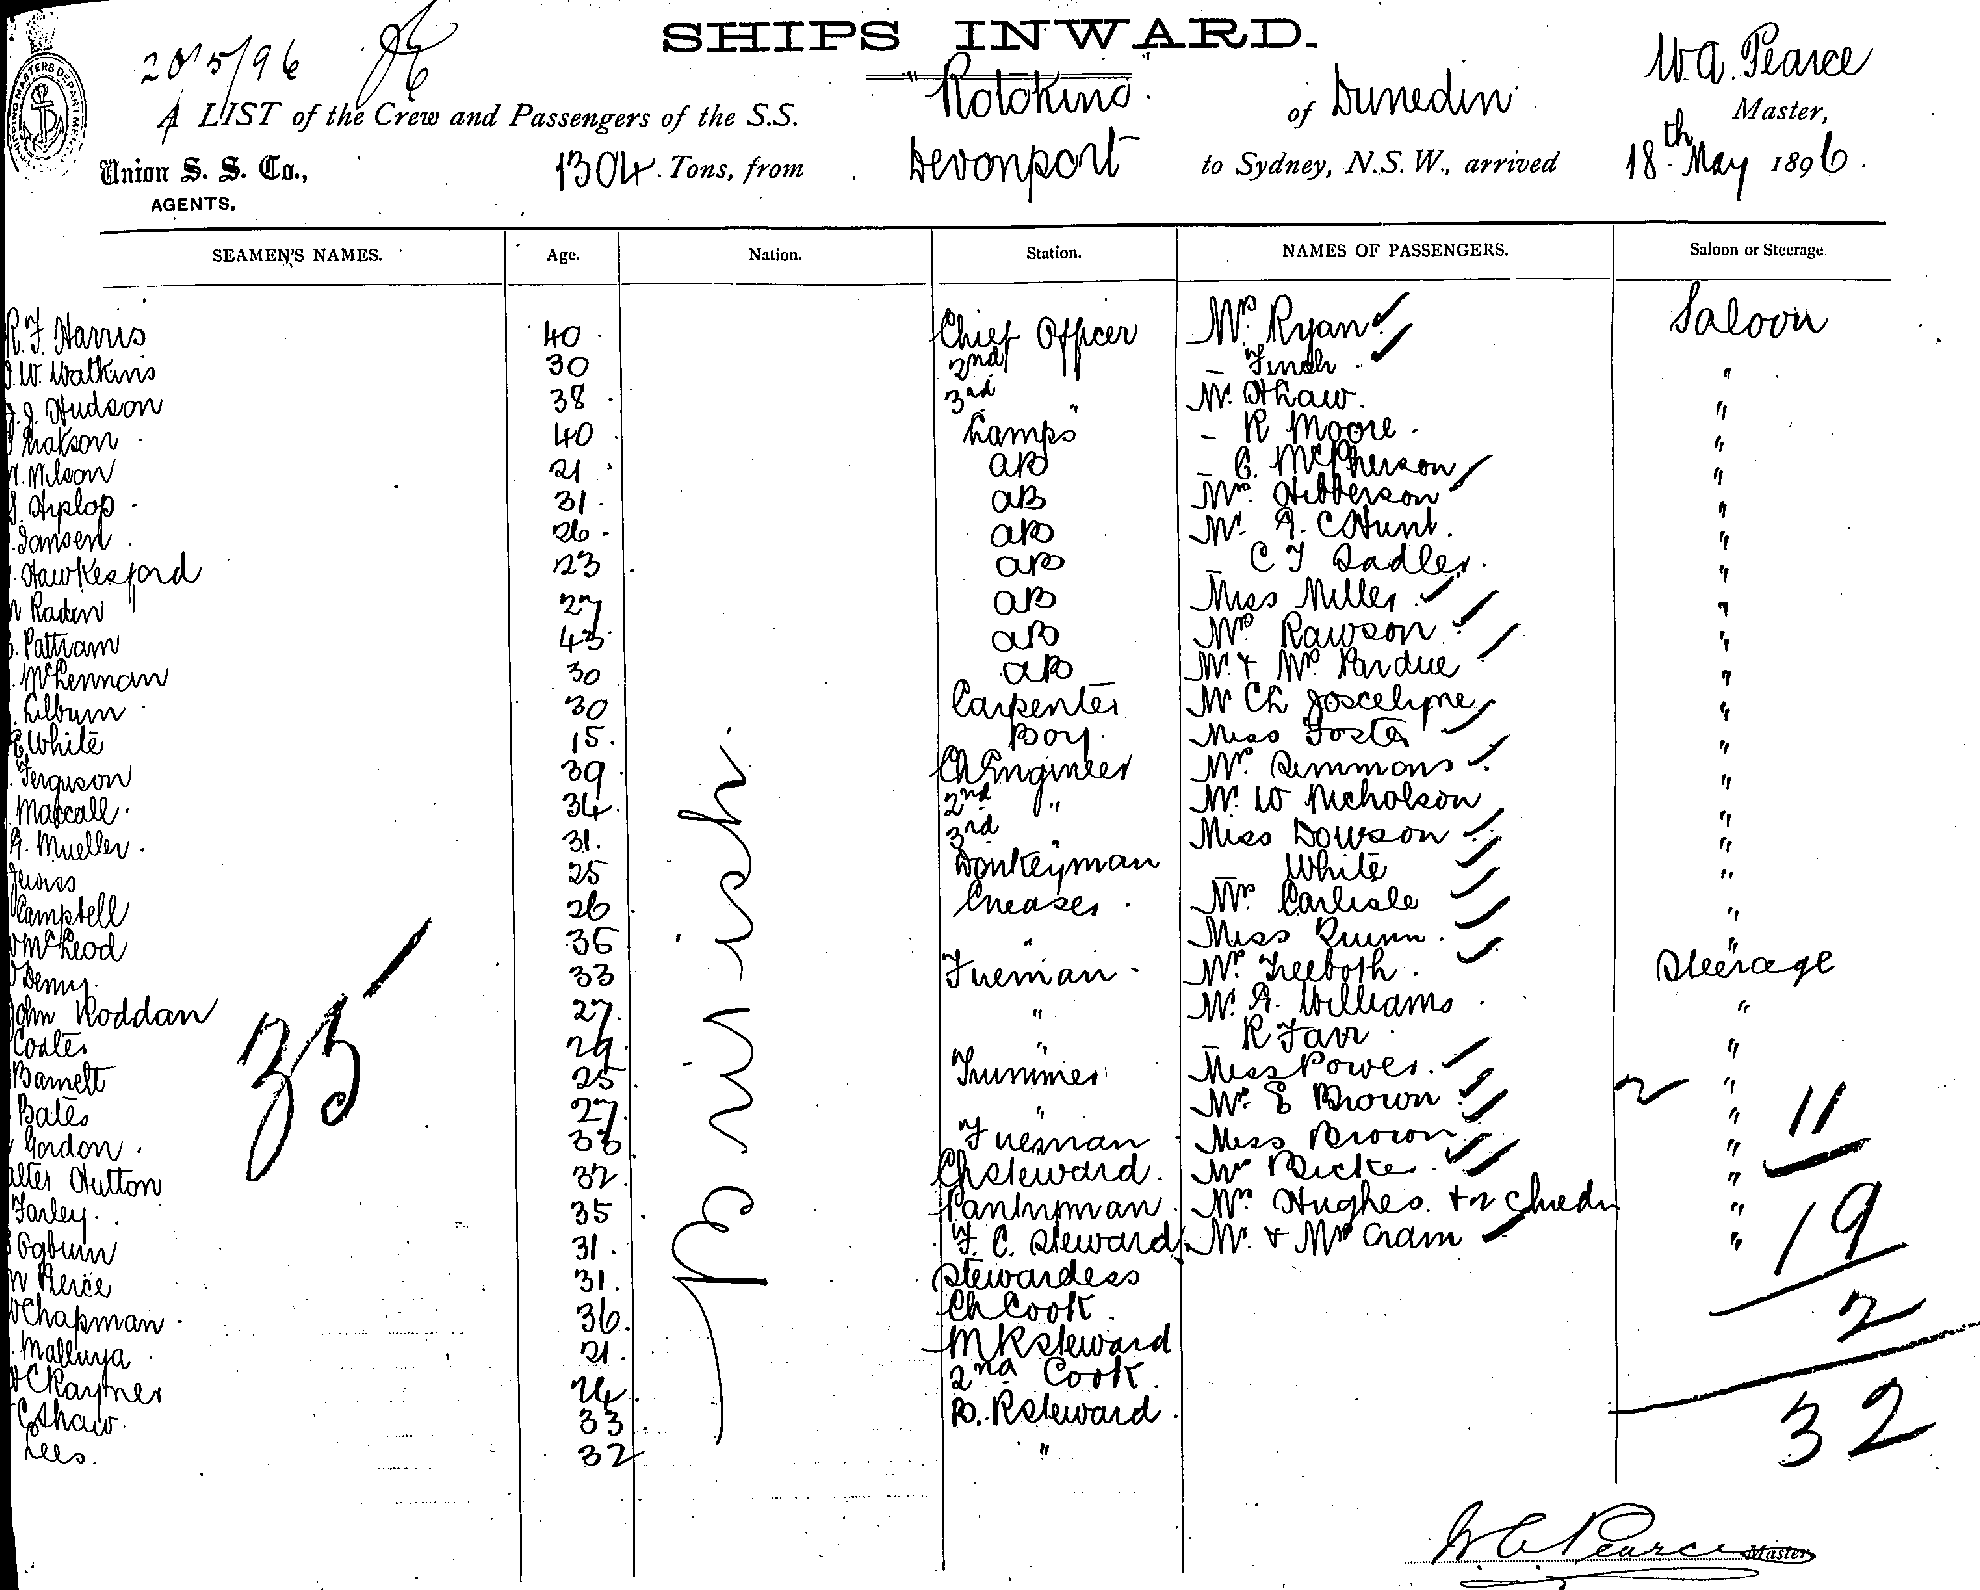 SHIPS INWARD.
20/5/96
W.A. Pearce
A LIST of the Crew and Passengers of the S.S. "Rotokino" of Dunedin Master,
Union S. S. Co., 1304 Tons, from Devonport to Sydney, N.S.W., arrived 18th May 1896.
AGENTS.
SEAMEN'S NAMES. Age. Nation. Station. NAMES OF PASSENGERS. Saloon or Steerage.
R. F. Harris 40 Chief Officer Mrs Ryan Saloon
W. Watkins 30 2nd - Finch "
J. Hudson 38 3rd " Mr Shaw "
Watson 40 Lamps - R Moore "
Wilson 21 AB - C. McPherson "
Hyslop 31 AB Mrs Hibberson "
Jansen 26 AB Mr A. C Hunt "
Hawkesford 23 AB - C F Sadler "
Raden 27 AB Miss Miller "
Pattram 43 AB Mrs Rawson "
McLennan 30 AB Mr & Mrs Pardue "
Lilburn 30 Carpenter Mr Ch Joscelyne "
E White 15 Boy Miss Foster "
Ferguson 39 Ch Engineer Mr Simmons "
Maxcall 34 2nd " Mr W Nicholson "
A. Mueller 31 3rd " Miss Dowson "
25 Donkeyman - White "
Campbell 26 Greaser Mr Carlisle "
McLeod 36 " Miss Quinn "
Denny 33 Fireman Mr Freeboth Steerage
John Roddan 27 " Mr A. Williams "
Coates 29 " - R Farr "
Barnett 25 Trimmer Miss Power 2 "
Bates 27 " Mr E Brown " 11
Gordon 33 Fireman Miss Brown "
alter Hutton 32 Ch Steward Mr Bicker "
Farley 35 Pantryman Mrs Hughes & 2 Children " 19
Ogburn 31 F. C. Steward Mr & Mrs Cram "
Pierce 31 Stewardess
Chapman 36 Ch Cook 2
Malluya 21 M R Steward
C Rayner 24 2nd Cook
C Shaw 33 B. R Steward 32
Lees 32 "
35
British
W. A. Pearce Master